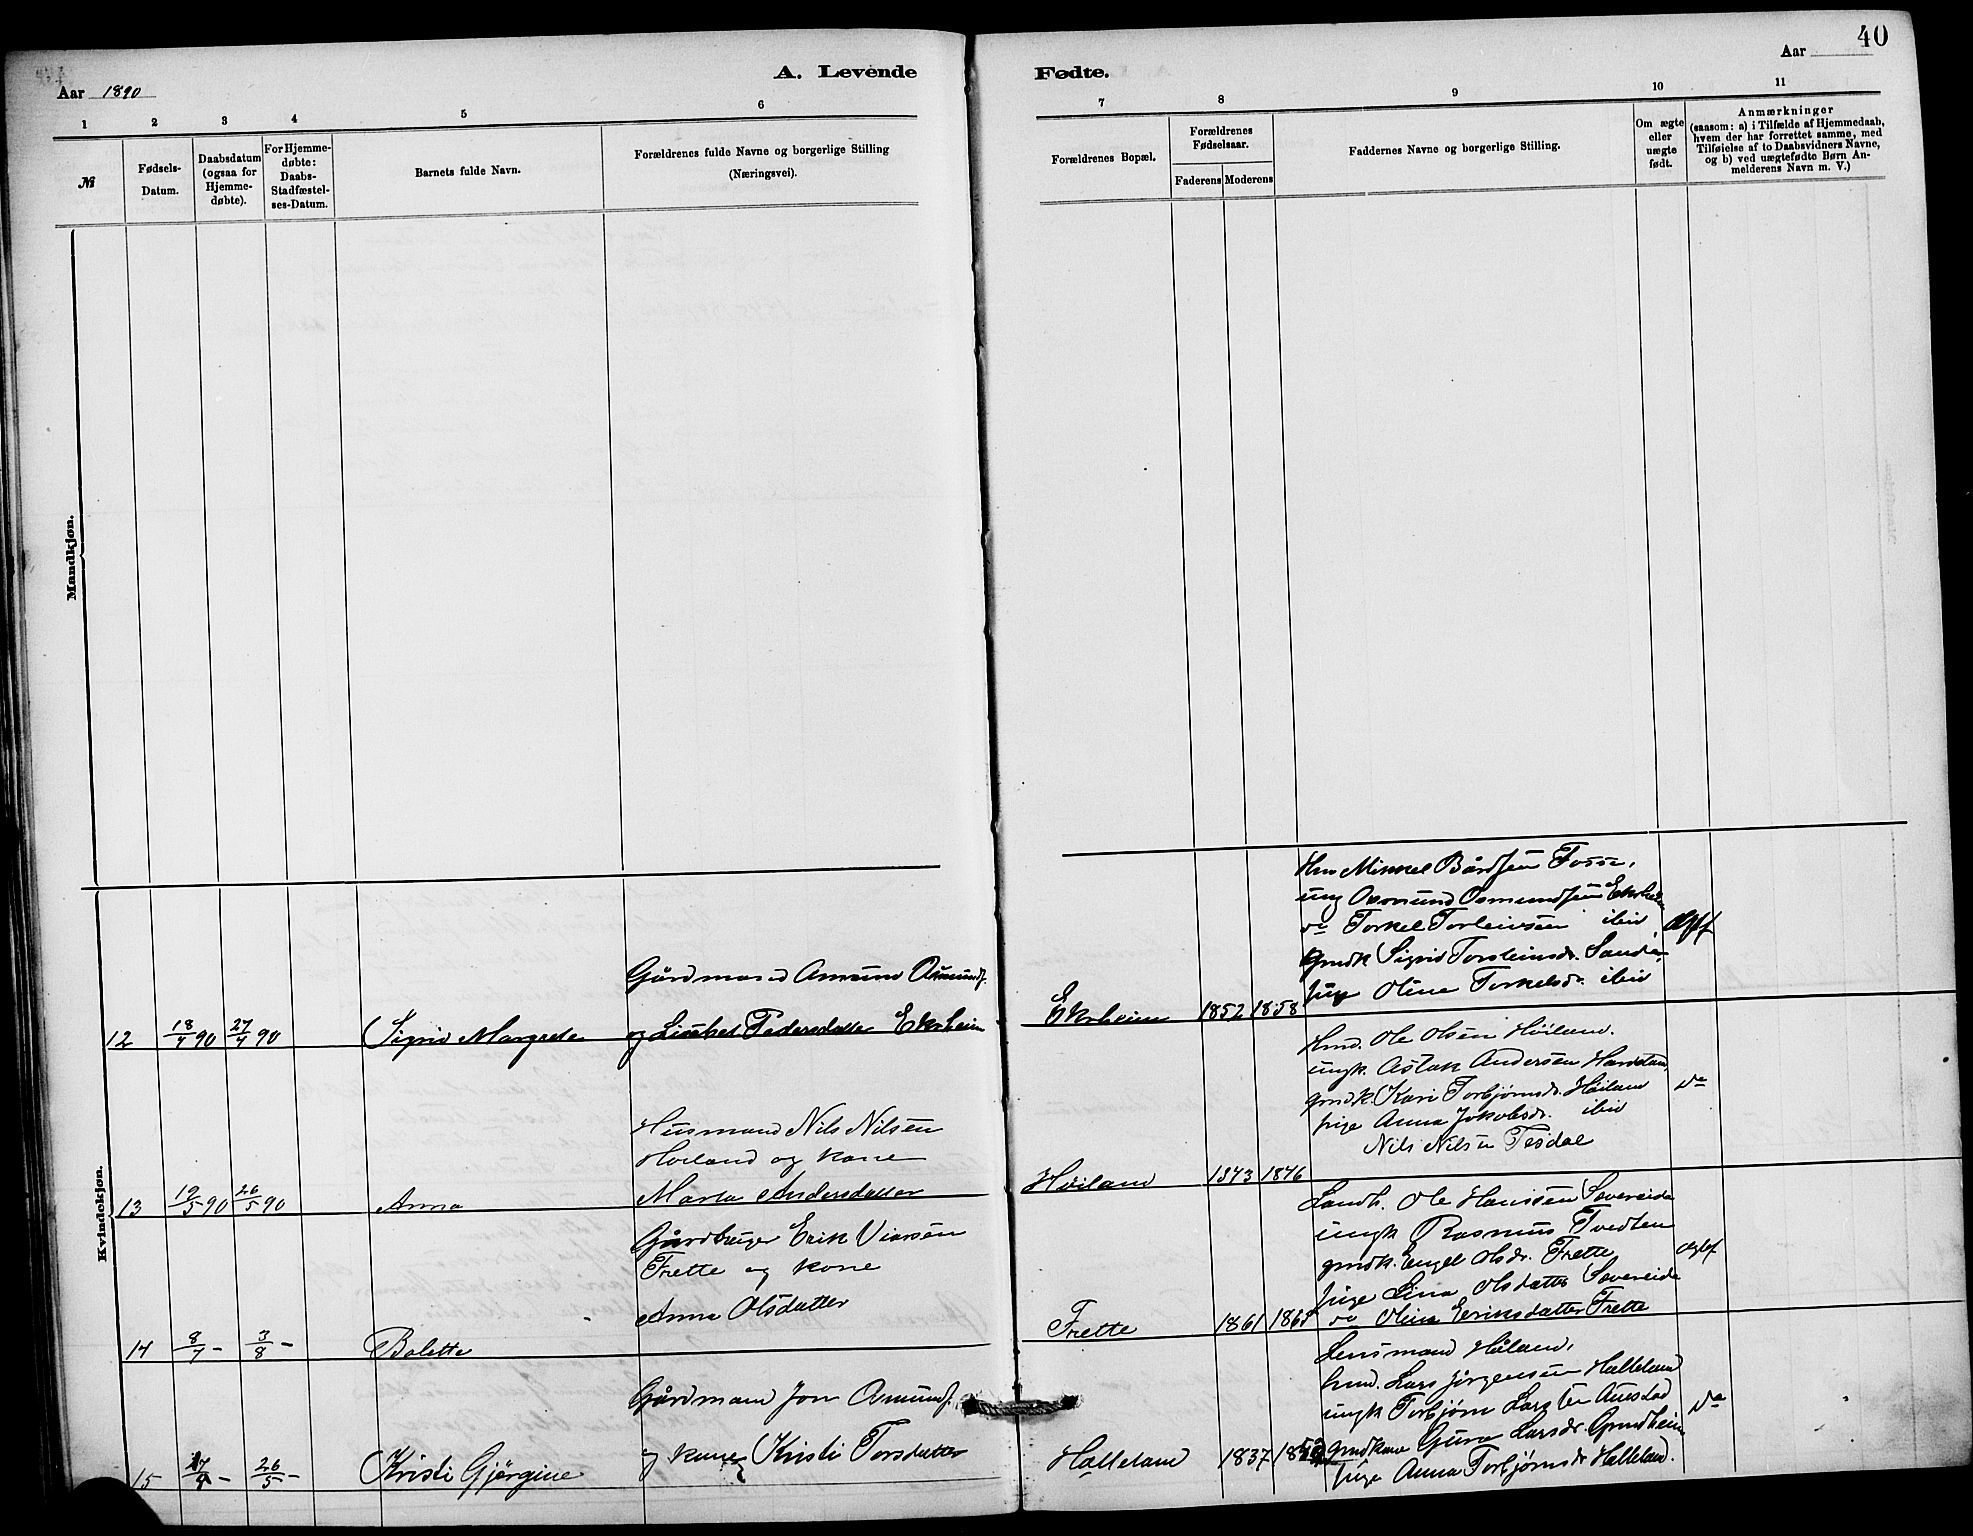 40
A. Levende Fødte.
Aar 1890
Aar
1 2 3 4 5 6 7 8 9 10 11
№
Fødsels-
Datum.
Daabsdatum
(ogsaa for
Hjemme-
døbte).
For Hjemme-
døbte:
Daabs-
Stadfæstel-
ses-Datum.
Barnets fulde Navn.
Forældrenes fulde Navne og borgerlige Stilling
(Næringsvei).
Forældrenes Bopæl.
Forældrenes
Fødselsaar.
Faderens Moderens
Faddernes Navne og borgerlige Stilling.
Om ægte
eller
uægte
født.
Anmærkninger
(saasom: a) i Tilfælde af Hjemmedaab,
hvem der har forrettet samme, med
Tilføielse af to Daabsvidners Navne,
og b) ved uægtefødte Børn An-
melderens Navn m. V.)
Mandkjøn.
Kvindekjøn.
12
18/4 90
27/4 90
Sigrid Margrete
Gårdmand Amund Osmundf.
og Lisabet Pedersdatter Ekrheim
Ekrheim
1852 1858
Hm Mikkel Bårdsen Fosse,
ung Osmund Osmundsen Ekrheim
do Torkel Torleivsen ibid
Gmdk Sigrid Torsteinsdr. Sandø
pige Oline Torkelsdr. ibid
ægtef
13
19/5 90
26/5 90
Anna
Husmand Nils Nilsen
Høiland og kone
Marta Andersdatter
Høiland
1843 1846
Hmd. Ole Olsen Høiland.
ungk. Aslak Andersen Haveland
gmdk. Kari Torbjørnsdr. Høiland
pige Anna Jokobsdr. ibid
Nils Nilsen Tesdal
do
14
8/7 -
3/8 -
Bolette
Gårdbruger Erik Viarsen
Frette og kone
Anna Olsdatter
Frette
1861
Landh. Ole Hanssen Sovereide
ungk Rasmus Tvedten
gmdk. Engel Olsdr. Frette
pige Lina Olsdatter Sovereide
do Olina Eriksdatter Frette
ægtef
15
26/5 -
Kristi Gjørgine
Gårdmand Jon Osmundf.
og kone Kristi Torsdatter
Halleland
1837
Lensmand Høland,
hmd. Lars Jørgensen Halleland
ungk Torbjørn Larsen Austad
gmdkone Guro Larsdr. Grindheim
pige Anna Torbjørnsdr Halleland.
do